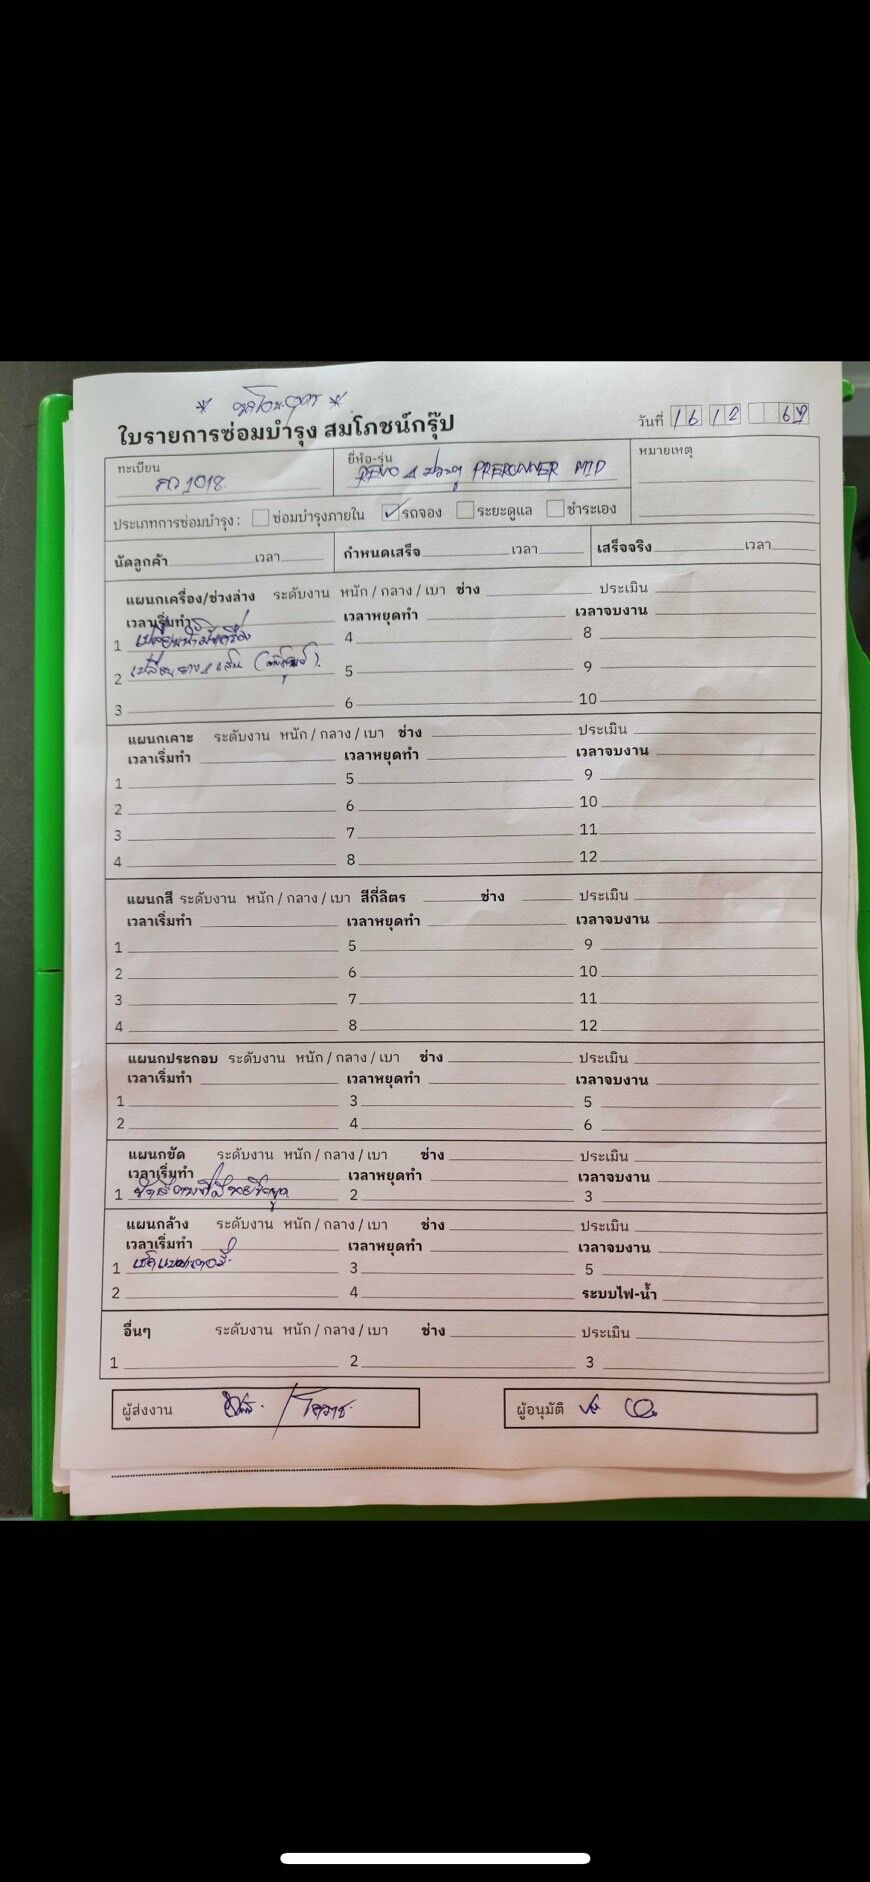 ใบรายการซ่อมบำรุง สมโภชน์กรุ๊ป
วันที่ 16 12 67
ทะเบียน 1018
ยี่ห้อ-รุ่น REVO 4 ประตู PRERUNNER MID
หมายเหตุ
ประเภทการซ่อมบำรุง : ซ่อมบำรุงภายใน รถจอง ระยะดูแล ชำระเอง
นัดลูกค้า เวลา กำหนดเสร็จ เวลา เสร็จจริง เวลา
แผนกเครื่อง/ช่วงล่าง ระดับงาน หนัก / กลาง / เบา ช่าง ประเมิน
เวลาเริ่มทำ เวลาหยุดทำ เวลาจบงาน
1 เปลี่ยนน้ำมันเครื่อง 4 8
2 เปลี่ยนยาง 4 เส้น 5 9
3 6 10
แผนกเคาะ ระดับงาน หนัก / กลาง / เบา ช่าง ประเมิน
เวลาเริ่มทำ เวลาหยุดทำ เวลาจบงาน
1 5 9
2 6 10
3 7 11
4 8 12
แผนกสี ระดับงาน หนัก / กลาง / เบา สีกี่ลิตร ช่าง ประเมิน
เวลาเริ่มทำ เวลาหยุดทำ เวลาจบงาน
1 5 9
2 6 10
3 7 11
4 8 12
แผนกประกอบ ระดับงาน หนัก / กลาง / เบา ช่าง ประเมิน
เวลาเริ่มทำ เวลาหยุดทำ เวลาจบงาน
1 3 5
2 4 6
แผนกขัด ระดับงาน หนัก / กลาง / เบา ช่าง ประเมิน
เวลาเริ่มทำ เวลาหยุดทำ เวลาจบงาน
1 2 3
แผนกล้าง ระดับงาน หนัก / กลาง / เบา ช่าง ประเมิน
เวลาเริ่มทำ เวลาหยุดทำ เวลาจบงาน
1 เช็คแบตเตอรี่ 3 5
2 4 ระบบไฟ-น้ำ
อื่นๆ ระดับงาน หนัก / กลาง / เบา ช่าง ประเมิน
1 2 3
ผู้ส่งงาน
ผู้อนุมัติ